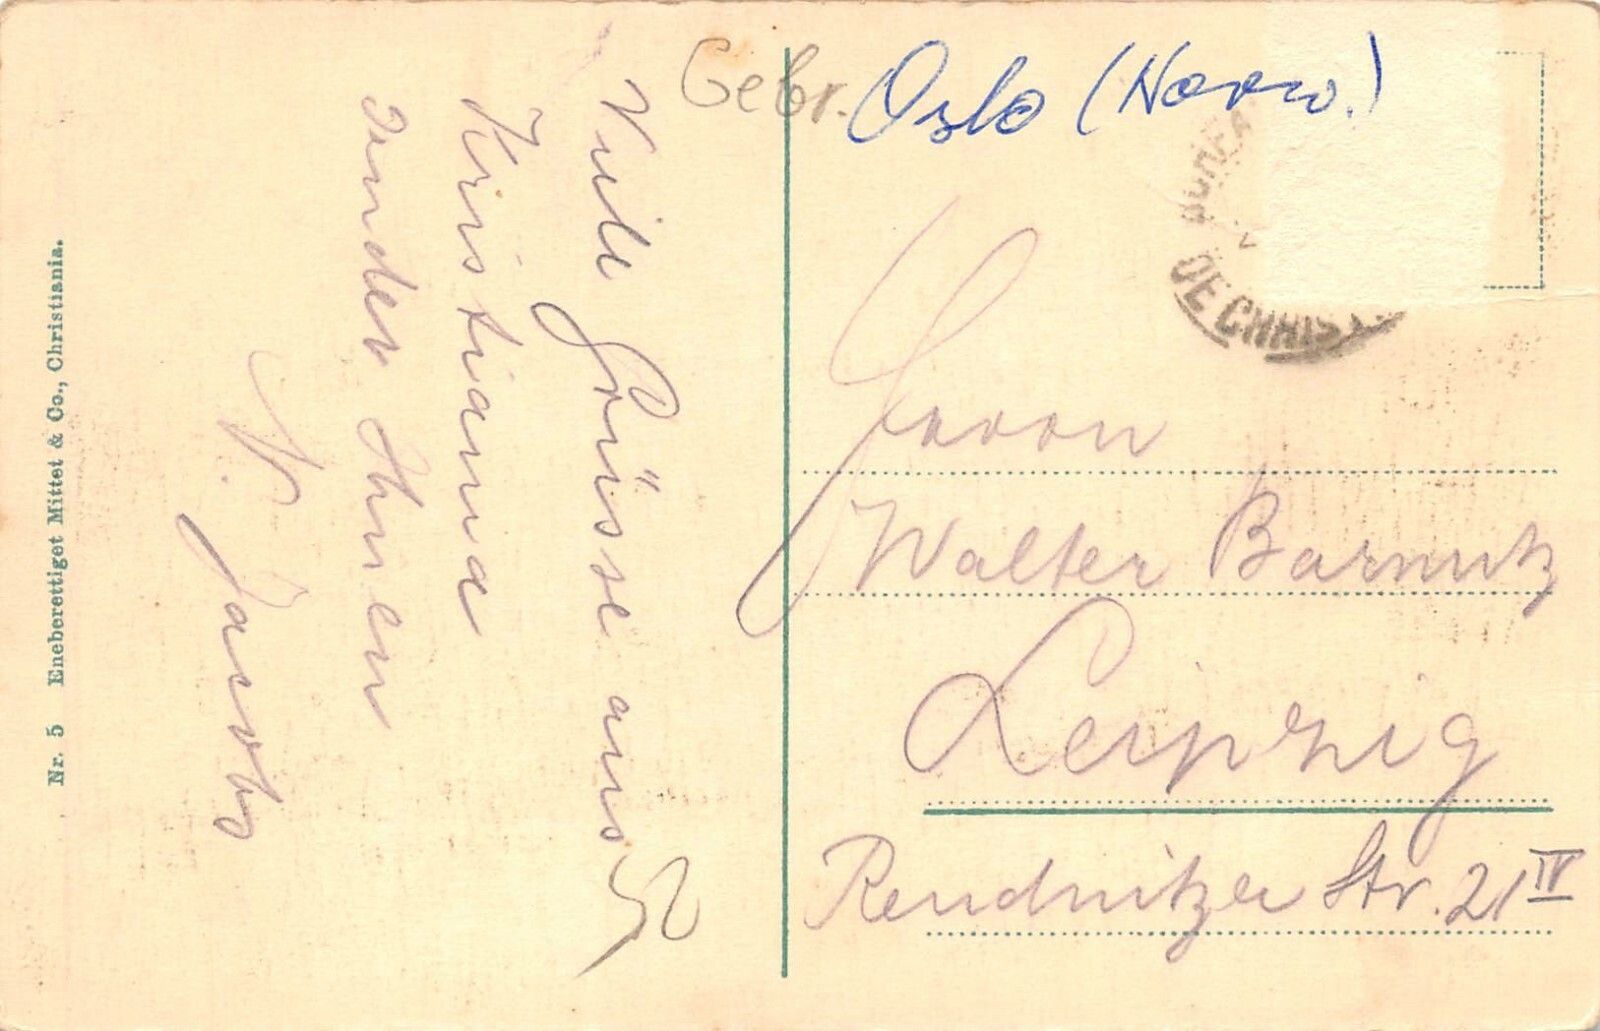 Nr. 5 Eneberettiget Mittet & Co., Christiania.
Viele Grüsse aus
Kristiania
sendet Ihnen
Jacoby
Gebr. Oslo (Norw.)
DE CHRIST
Herrn
Walter Barnutz
Leipzig
Reudnitzer Str. 21 IV